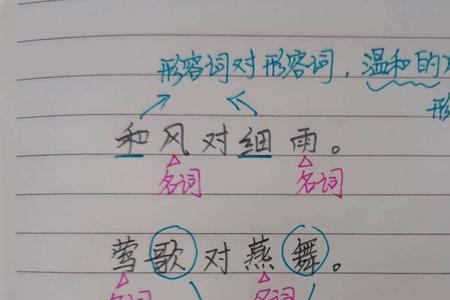 形容词对形容词，温和的
形
和风对细雨。
名词 名词
莺歌对燕舞。
名词 名词